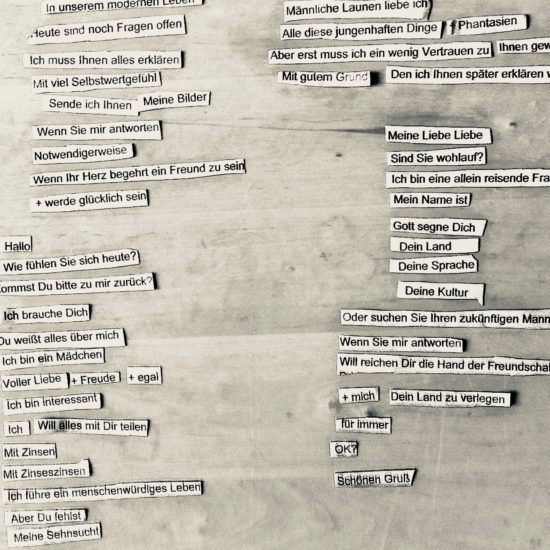 In unserem modernen Leben
Heute sind noch Fragen offen
Ich muss Ihnen alles erklären
Mit viel Selbstwertgefühl
Sende ich Ihnen Meine Bilder
Wenn Sie mir antworten
Notwendigerweise
Wenn Ihr Herz begehrt ein Freund zu sein
+ werde glücklich sein
Hallo
Wie fühlen Sie sich heute?
Kommst Du bitte zu mir zurück?
Ich brauche Dich
Du weißt alles über mich
Ich bin ein Mädchen
Voller Liebe + Freude + egal
Ich bin interessant
Ich Will alles mit Dir teilen
Mit Zinsen
Mit Zinseszinsen
Ich führe ein menschenwürdiges Leben
Aber Du fehlst
Meine Sehnsucht
Männliche Launen liebe ich
Alle diese jungenhaften Dinge + Phantasien
Aber erst muss ich ein wenig Vertrauen zu Ihnen gew
Mit gutem Grund Den ich Ihnen später erklären w
Meine Liebe Liebe
Sind Sie wohlauf?
Ich bin eine allein reisende Fra
Mein Name ist
Gott segne Dich
Dein Land
Deine Sprache
Deine Kultur
Oder suchen Sie Ihren zukünftigen Mann
Wenn Sie mir antworten
Will reichen Dir die Hand der Freundschaf
+ mich Dein Land zu verlegen
für immer
OK?
Schönen Gruß